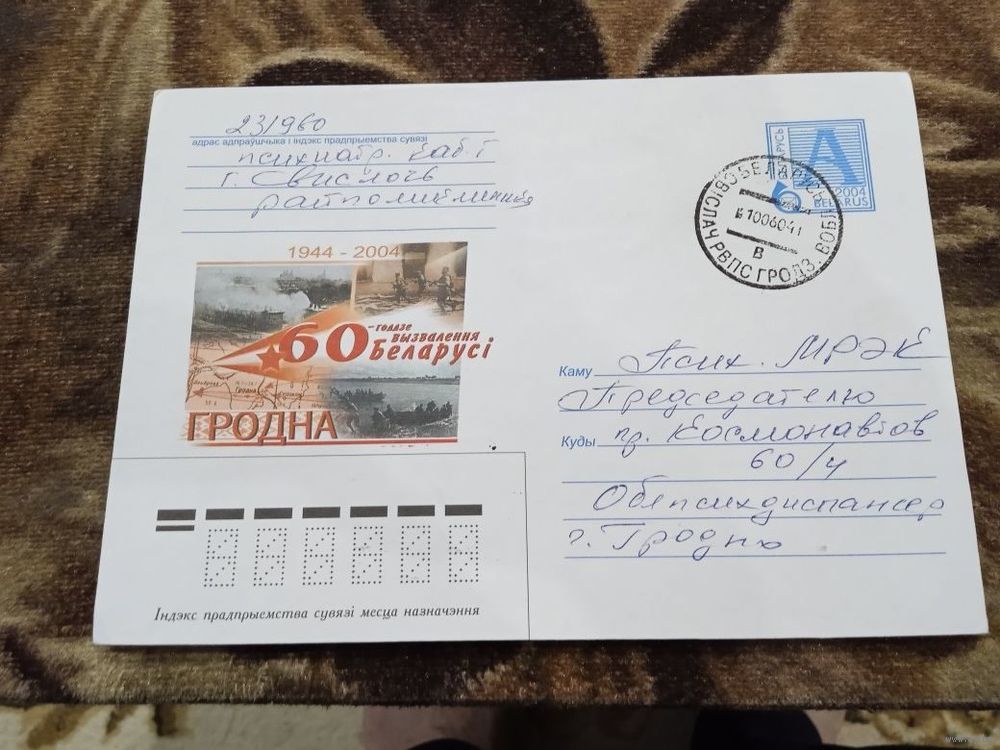 231960
адрас адпраўшчыка і індэкс прадпрыемства сувязі
психиатр. каб-т
г. Свислочь
райполиклиника
1944 - 2004
60 -годдзе
вызвалення
Беларусі
Гродна
ГРОДНА
БЕЛАРУСЬ
A
2004
BELARUS
БЕЛАРУСЬ
10060411
В
СВІСЛАЧ РВПС ГРОДЗ. ВОБЛ
Каму Псих. МРЭК
Председателю
Куды пр. Космонавтов
60/4
Облпсихдиспансер
г. Гродно
Індэкс прадпрыемства сувязі месца назначэння